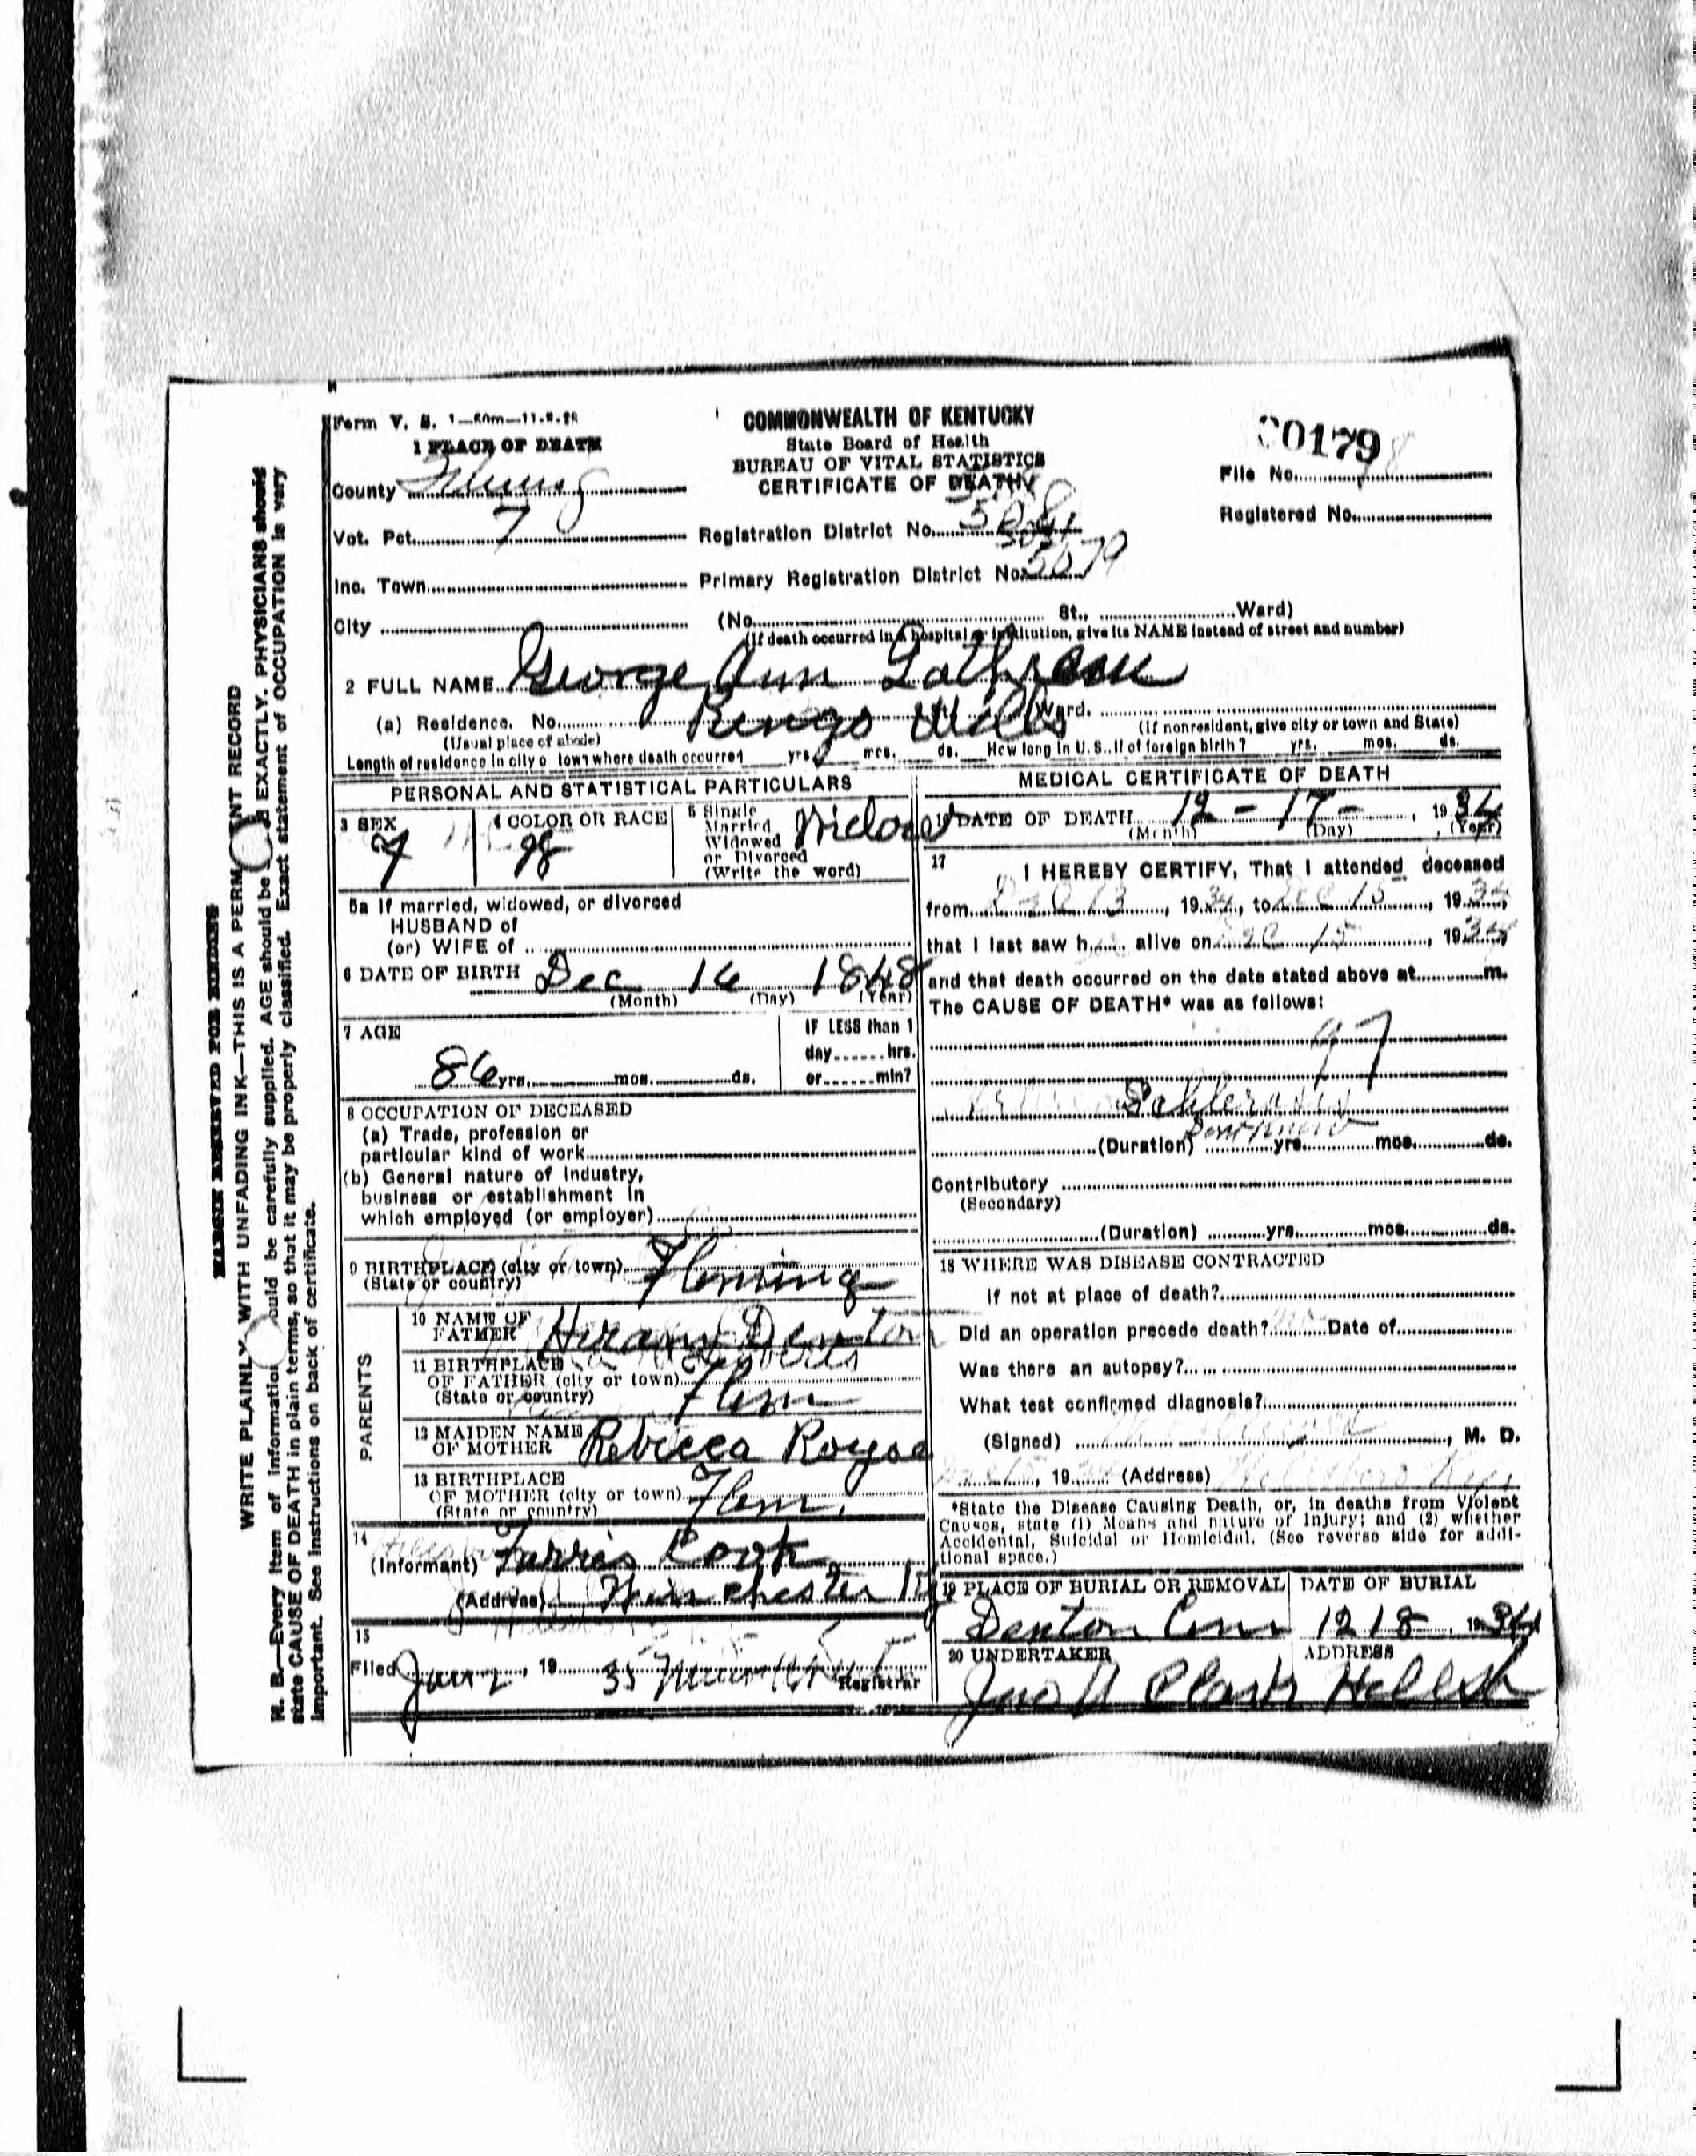 Form V. S. 1—50m—11-8-28
COMMONWEALTH OF KENTUCKY
State Board of Health
BUREAU OF VITAL STATISTICS
CERTIFICATE OF DEATH
1 PLACE OF DEATH
County Fleming
File No.
Vot. Pct. 7
Registration District No.
Registered No.
Inc. Town
Primary Registration District No. 5079
City
(No. St., Ward)
(If death occurred in a hospital or institution, give its NAME instead of street and number)
2 FULL NAME George Ann
(a) Residence. No. Ringos Mills Ward.
(Usual place of abode)
(If nonresident, give city or town and State)
Length of residence in city or town where death occurred yrs. mos. ds. How long in U. S., if of foreign birth? yrs. mos. ds.
PERSONAL AND STATISTICAL PARTICULARS
3 SEX
4 COLOR OR RACE
5 Single
Married
Widowed
or Divorced
(Write the word)
Widowed
5a If married, widowed, or divorced
HUSBAND of
(or) WIFE of
6 DATE OF BIRTH Dec 16 1848
(Month) (Day) (Year)
7 AGE
86 yrs. mos. ds.
IF LESS than 1
day hrs.
or min?
8 OCCUPATION OF DECEASED
(a) Trade, profession or
particular kind of work
(b) General nature of industry,
business or establishment in
which employed (or employer)
9 BIRTHPLACE (city or town) Fleming
(State or country)
PARENTS
10 NAME OF
FATHER Hiram Denton
11 BIRTHPLACE
OF FATHER (city or town)
(State or country) Flem
12 MAIDEN NAME
OF MOTHER Rebecca Royse
13 BIRTHPLACE
OF MOTHER (city or town) Flem.
(State or country)
14
(Informant) Farris Cook
(Address) Winchester Ky
15
Filed Jan 2, 19 35
Registrar
MEDICAL CERTIFICATE OF DEATH
16 DATE OF DEATH 12 - 17 - , 1934
(Month) (Day) (Year)
17
I HEREBY CERTIFY, That I attended deceased
from Dec 13, 1934, to Dec 15, 1934,
that I last saw h alive on Dec 15, 1934,
and that death occurred on the date stated above at m.
The CAUSE OF DEATH* was as follows:
97
(Duration) yrs. mos. ds.
Contributory
(Secondary)
(Duration) yrs. mos. ds.
18 WHERE WAS DISEASE CONTRACTED
if not at place of death?
Did an operation precede death? Date of
Was there an autopsy?
What test confirmed diagnosis?
(Signed) , M. D.
, 19 (Address)
*State the Disease Causing Death, or, in deaths from Violent
Causes, state (1) Means and nature of Injury; and (2) whether
Accidental, Suicidal or Homicidal. (See reverse side for addi-
tional space.)
19 PLACE OF BURIAL OR REMOVAL
Denton Cem
DATE OF BURIAL
12 18, 1934
20 UNDERTAKER
Clark
ADDRESS
MARGIN RESERVED FOR BINDING
WRITE PLAINLY, WITH UNFADING INK—THIS IS A PERMANENT RECORD
N. B.—Every item of information should be carefully supplied. AGE should be EXACTLY. PHYSICIANS should
state CAUSE OF DEATH in plain terms, so that it may be properly classified. Exact statement of OCCUPATION is very
important. See instructions on back of certificate.